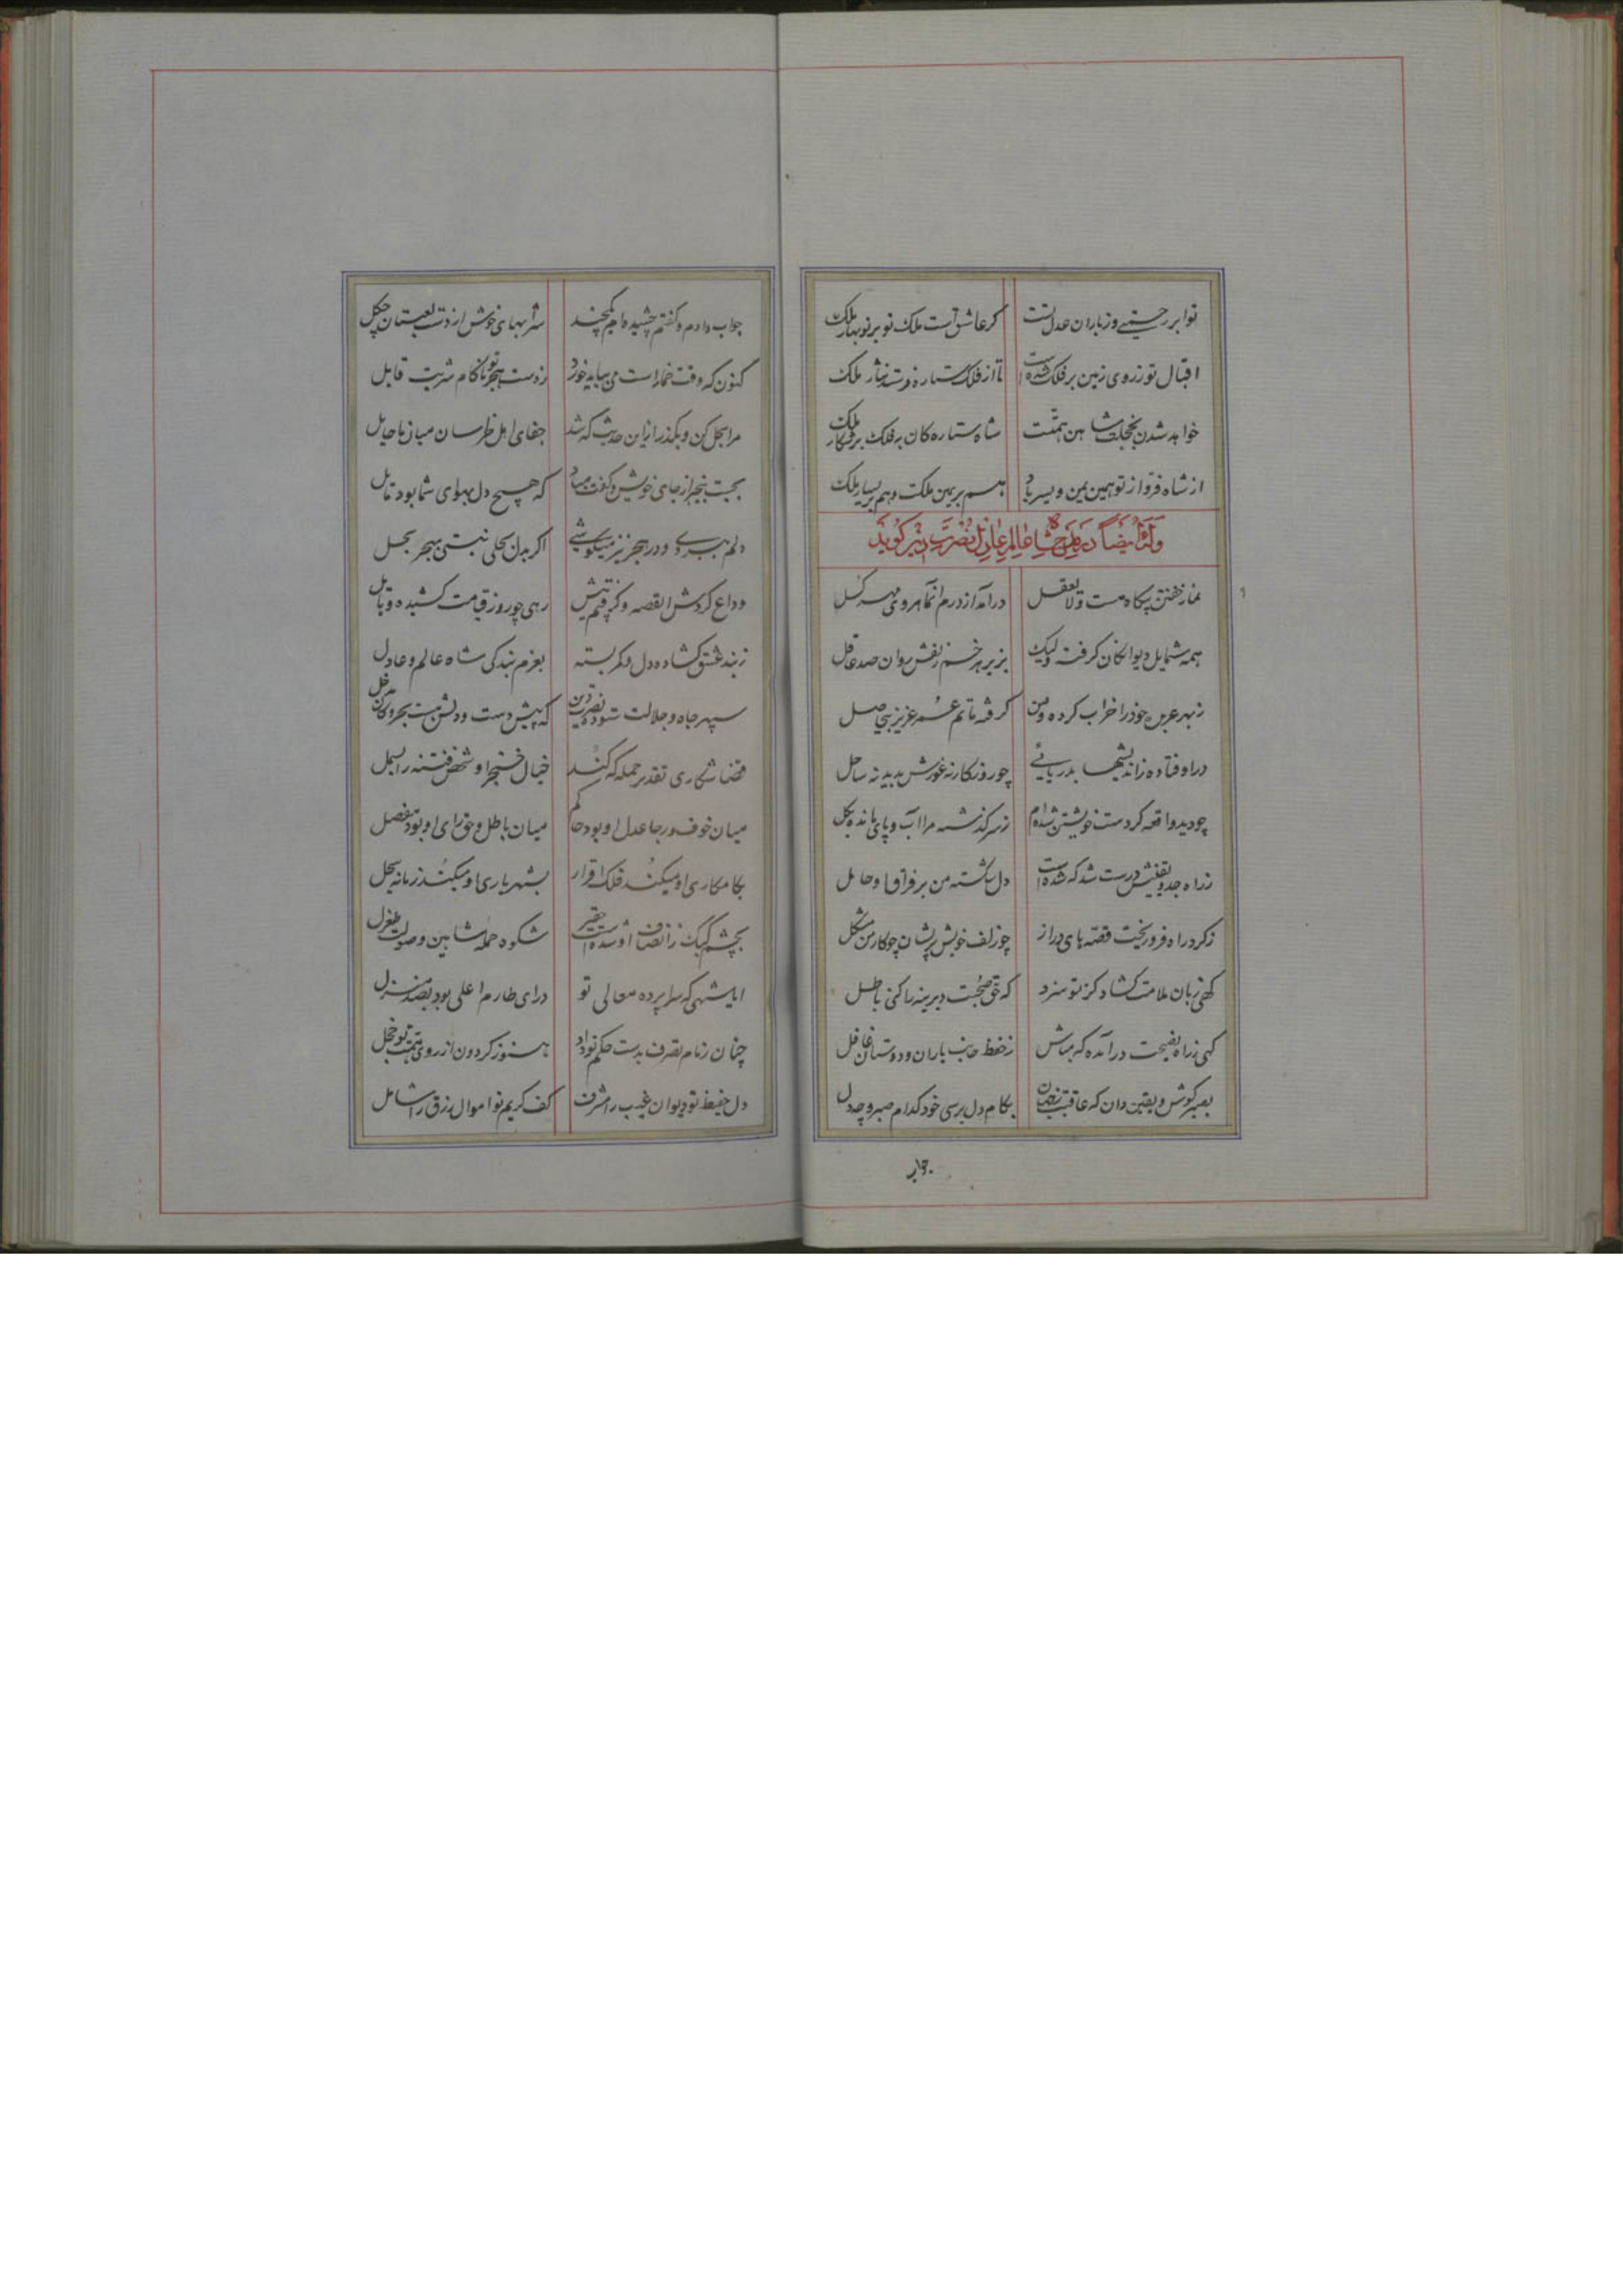 تو ابر رحمتی و ز باران عدل تست
کر عاشق است ملک تو بر نوبهار ملک
اقبال تو ز روی زمین بر فلک شده است
تا از فلک ستاره فرستد نثار ملک
خواهد شدن شاهین همتت
شاه ستاره کان به فلک بر شکار ملک
از شاه فر و از تو همین یمن و یسر باد
هم بر یمین ملک و هم بر یسار ملک
وله ایضاً در مدح شاه عالم عادل نصرت الدین گوید
نماز خفتن بیکاه مست و لایعقل
درآمد از درم آن ماهروی مهر کسل
همه شمایل دیوانکان کرفته ولیک
بزیر هر خم زلفش روان صد عاقل
ز بهر عربده خود را خراب کرده و من
کرفته ماتم عمر عزیز بیحاصل
در اوفتاده ز اندیشها بدریائی
چو روزکار نه غورش پدید نه ساحل
چو دید واقعه کز دست خویشتن شده‌ام
ز سر کذشته مرا آب و پای مانده بکل
ز راه جد و تفتیش درست شد که شده است
دل شکسته من بر فراق او حامل
ز کرد راه فرو ریخت قصه های دراز
چو زلف خویش پریشان چو کار من مشکل
کهی زبان ملامت کشاد کز تو سزد
که حق صحبت دیرینه را کنی باطل
کهی ز راه نصیحت درآمده که مباش
ز حفظ جانب یاران و دوستان غافل
بصبر کوش و یقین دان که عاقبت
بکام دل برسی خود کدام صبر و چه دل
جواب
جواب دادم و کفتم چشیده‌ام یکچند
شرابهای خوش از دست لعبتان چکل
کنون که وقت خمار است می بباید خورد
ز دست هجر تو ناکام شربت قاتل
مرا بحل کن و بکذر ازین حدیث که شد
جفای اهل خراسان میان ما حایل
بجست بیخبر از جای خویش و کفت مباد
که هیچ دل بهوای شما بود مایل
دلم ببردی و در هجر نیز میکوشی
اکر بدل بحلی نیستی بهجر بحل
وداع کردمش القصه و کرفتم پیش
رهی چو روز قیامت کشیده و هایل
ز بند عشق کشاده دل و کمر بسته
بعزم بندکی شاه عالم و عادل
سپهر جاه و جلالت ستوده نصرت دین
که پیش دست و دلش هست بحر و کان مدخل
قضا شکاری تقدیر حمله که کند
خیال خنجر او شخص فتنه را بسمل
میان خوف و رجا عدل او بود حاکم
میان باطل و حق رای او بود مفصل
بکامکاری او میکند فلک اقرار
بشهریاری او میکند زمانه سجل
بچشم کبک ز انصاف او شده است حقیر
شکوه حمله شاهین و صولت طغرل
ایا شهی که سراپرده معالی تو
ورای طارم اعلی بود بصد منزل
چنان زمام تصرف بدست حکم تو داد
هنوز کردون از روی همتت تو خجل
دل حفیظ تو دیوان غیب را مشرف
کف کریم تو اموال رزق را شامل